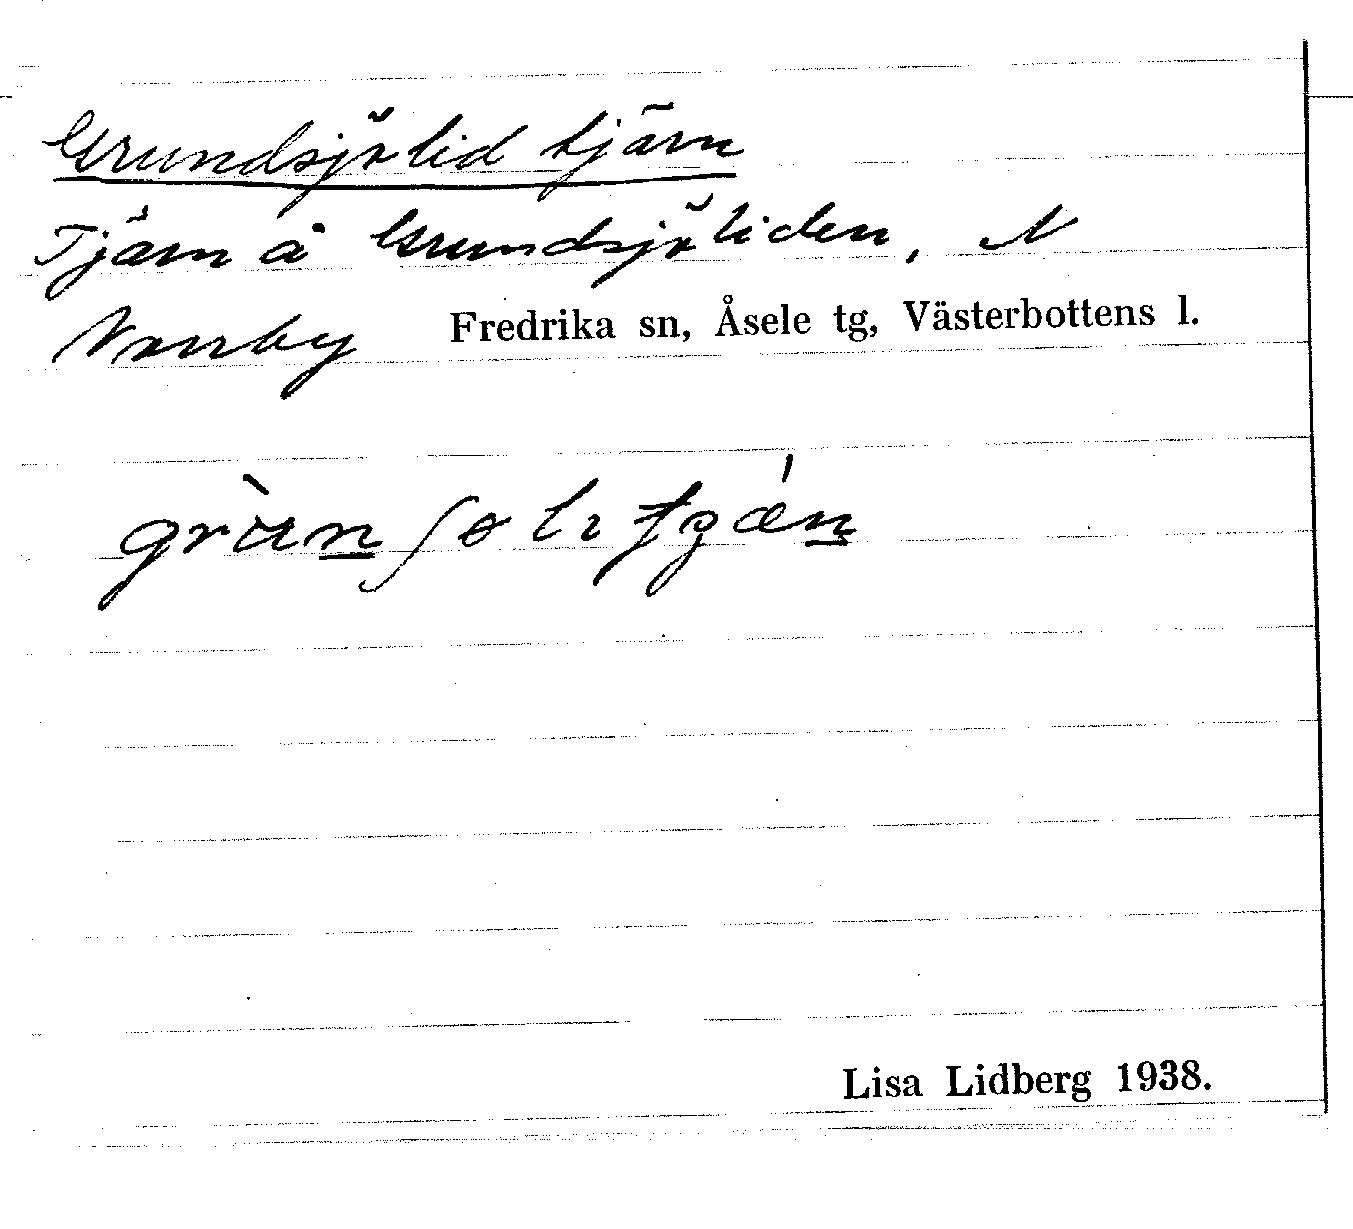 Grundsjölidtjärn
Tjärn å Grundsjöliden, N
Norrby Fredrika sn, Åsele tg, Västerbottens l.
Lisa Lidberg 1938.